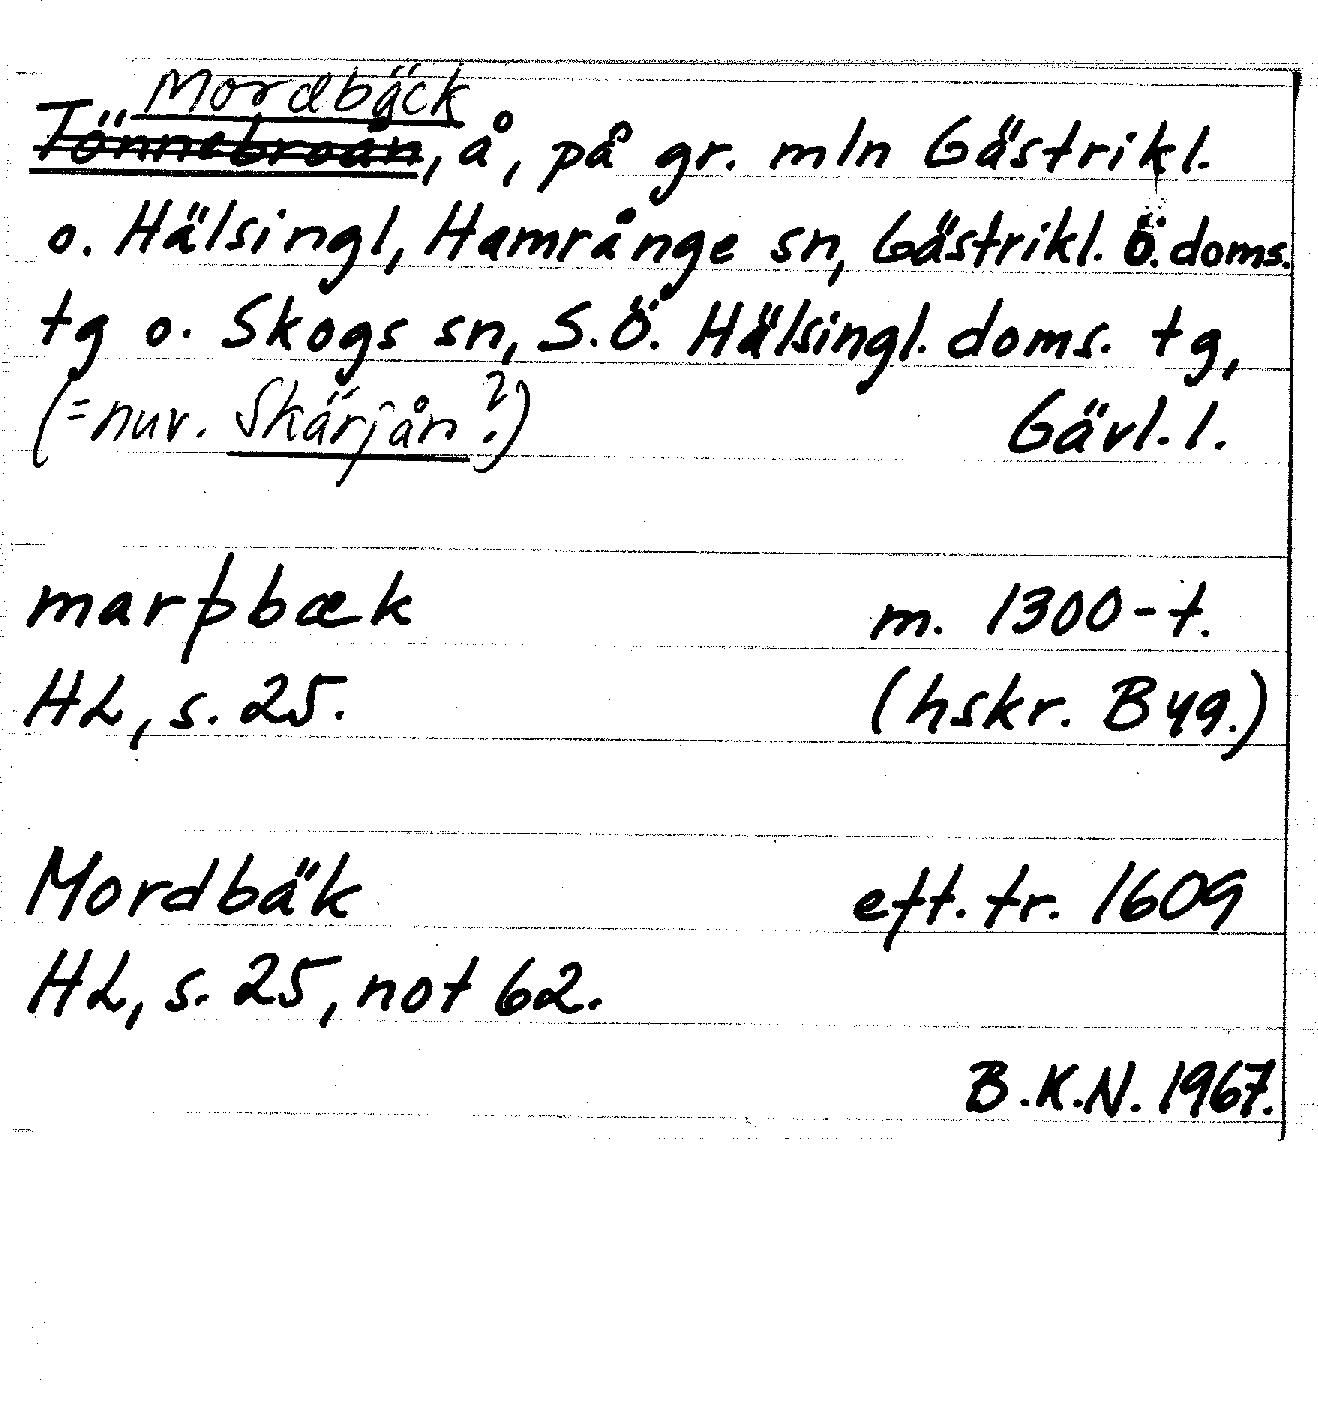 Mordbäck
Tönnebroån, å, på gr. mln Gästrikl.
o. Hälsingl, Hamrånge sn, Gästrikl. Ö. doms.
tg o. Skogs sn, S.Ö. Hälsingl. doms. tg,
(= nuv. Skärjån?) Gävl. l.
marþbæk m. 1300-t.
HL, s. 25. (hskr. Byg.)
Mordbäk eft. tr. 1609
HL, s. 25, not 62.
B.K.N. 1967.